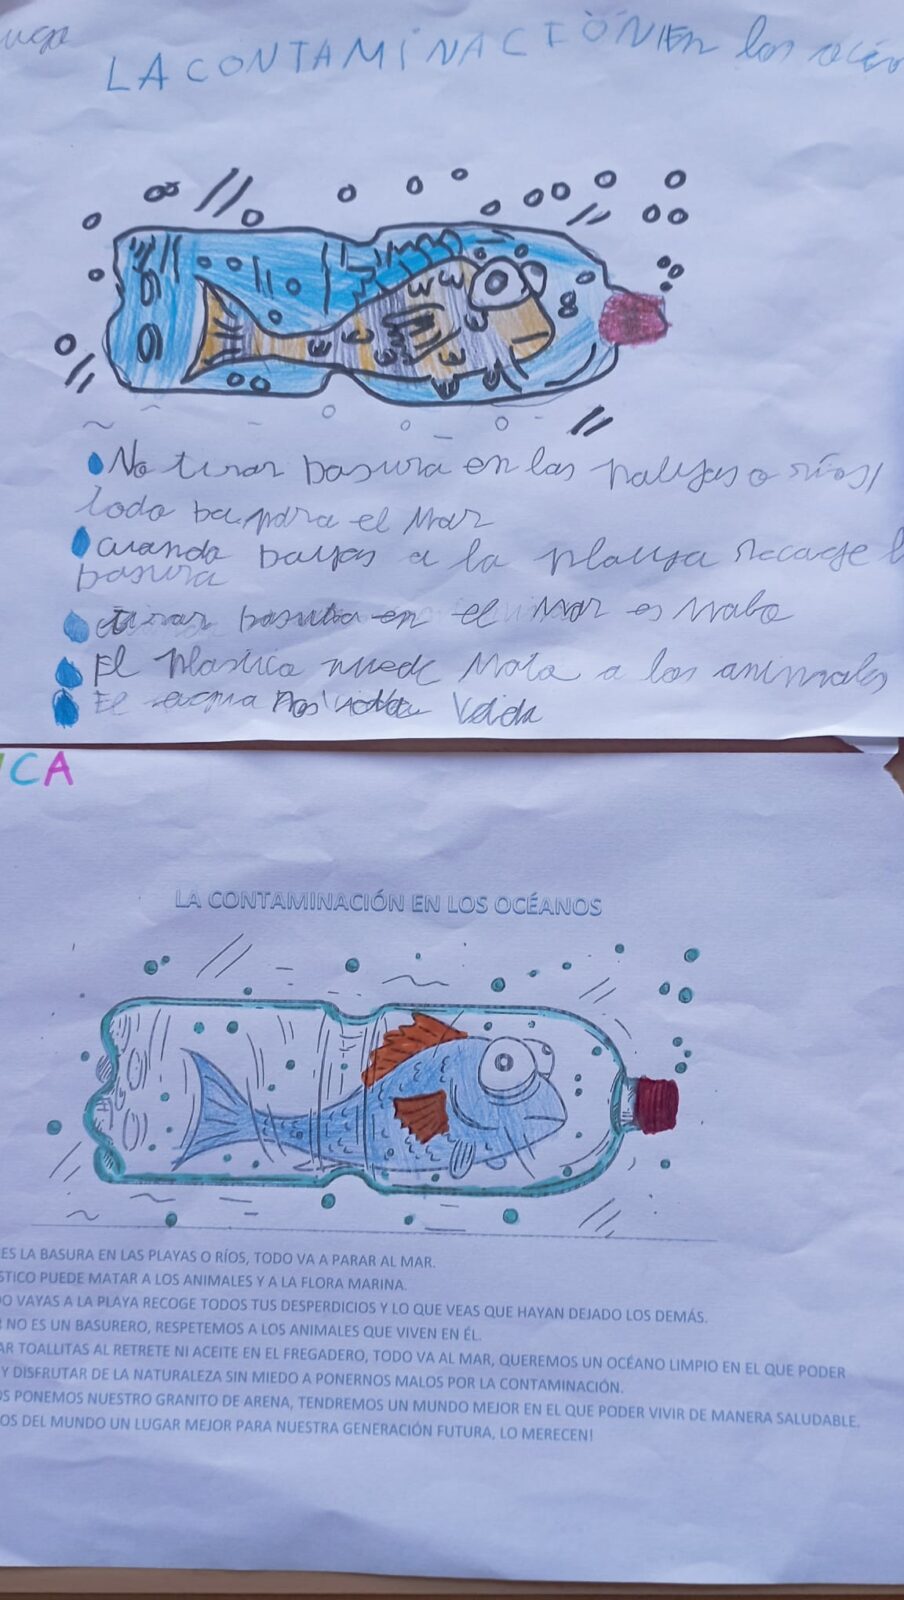 LA CONTAMINACIÓN En los océ
No tirar basura en las palyas o ríos,
todo ba para el mar
cuando bayas a la playa recoge l
basura
tirar basura en el mar es malo
El plastico puede mata a los animales
El agua nos da Vida
CA
LA CONTAMINACIÓN EN LOS OCÉANOS
ES LA BASURA EN LAS PLAYAS O RÍOS, TODO VA A PARAR AL MAR.
STICO PUEDE MATAR A LOS ANIMALES Y A LA FLORA MARINA.
O VAYAS A LA PLAYA RECOGE TODOS TUS DESPERDICIOS Y LO QUE VEAS QUE HAYAN DEJADO LOS DEMÁS.
NO ES UN BASURERO, RESPETEMOS A LOS ANIMALES QUE VIVEN EN ÉL.
AR TOALLITAS AL RETRETE NI ACEITE EN EL FREGADERO, TODO VA AL MAR, QUEREMOS UN OCÉANO LIMPIO EN EL QUE PODER
Y DISFRUTAR DE LA NATURALEZA SIN MIEDO A PONERNOS MALOS POR LA CONTAMINACIÓN.
OS PONEMOS NUESTRO GRANITO DE ARENA, TENDREMOS UN MUNDO MEJOR EN EL QUE PODER VIVIR DE MANERA SALUDABLE.
OS DEL MUNDO UN LUGAR MEJOR PARA NUESTRA GENERACIÓN FUTURA, LO MERECEN!